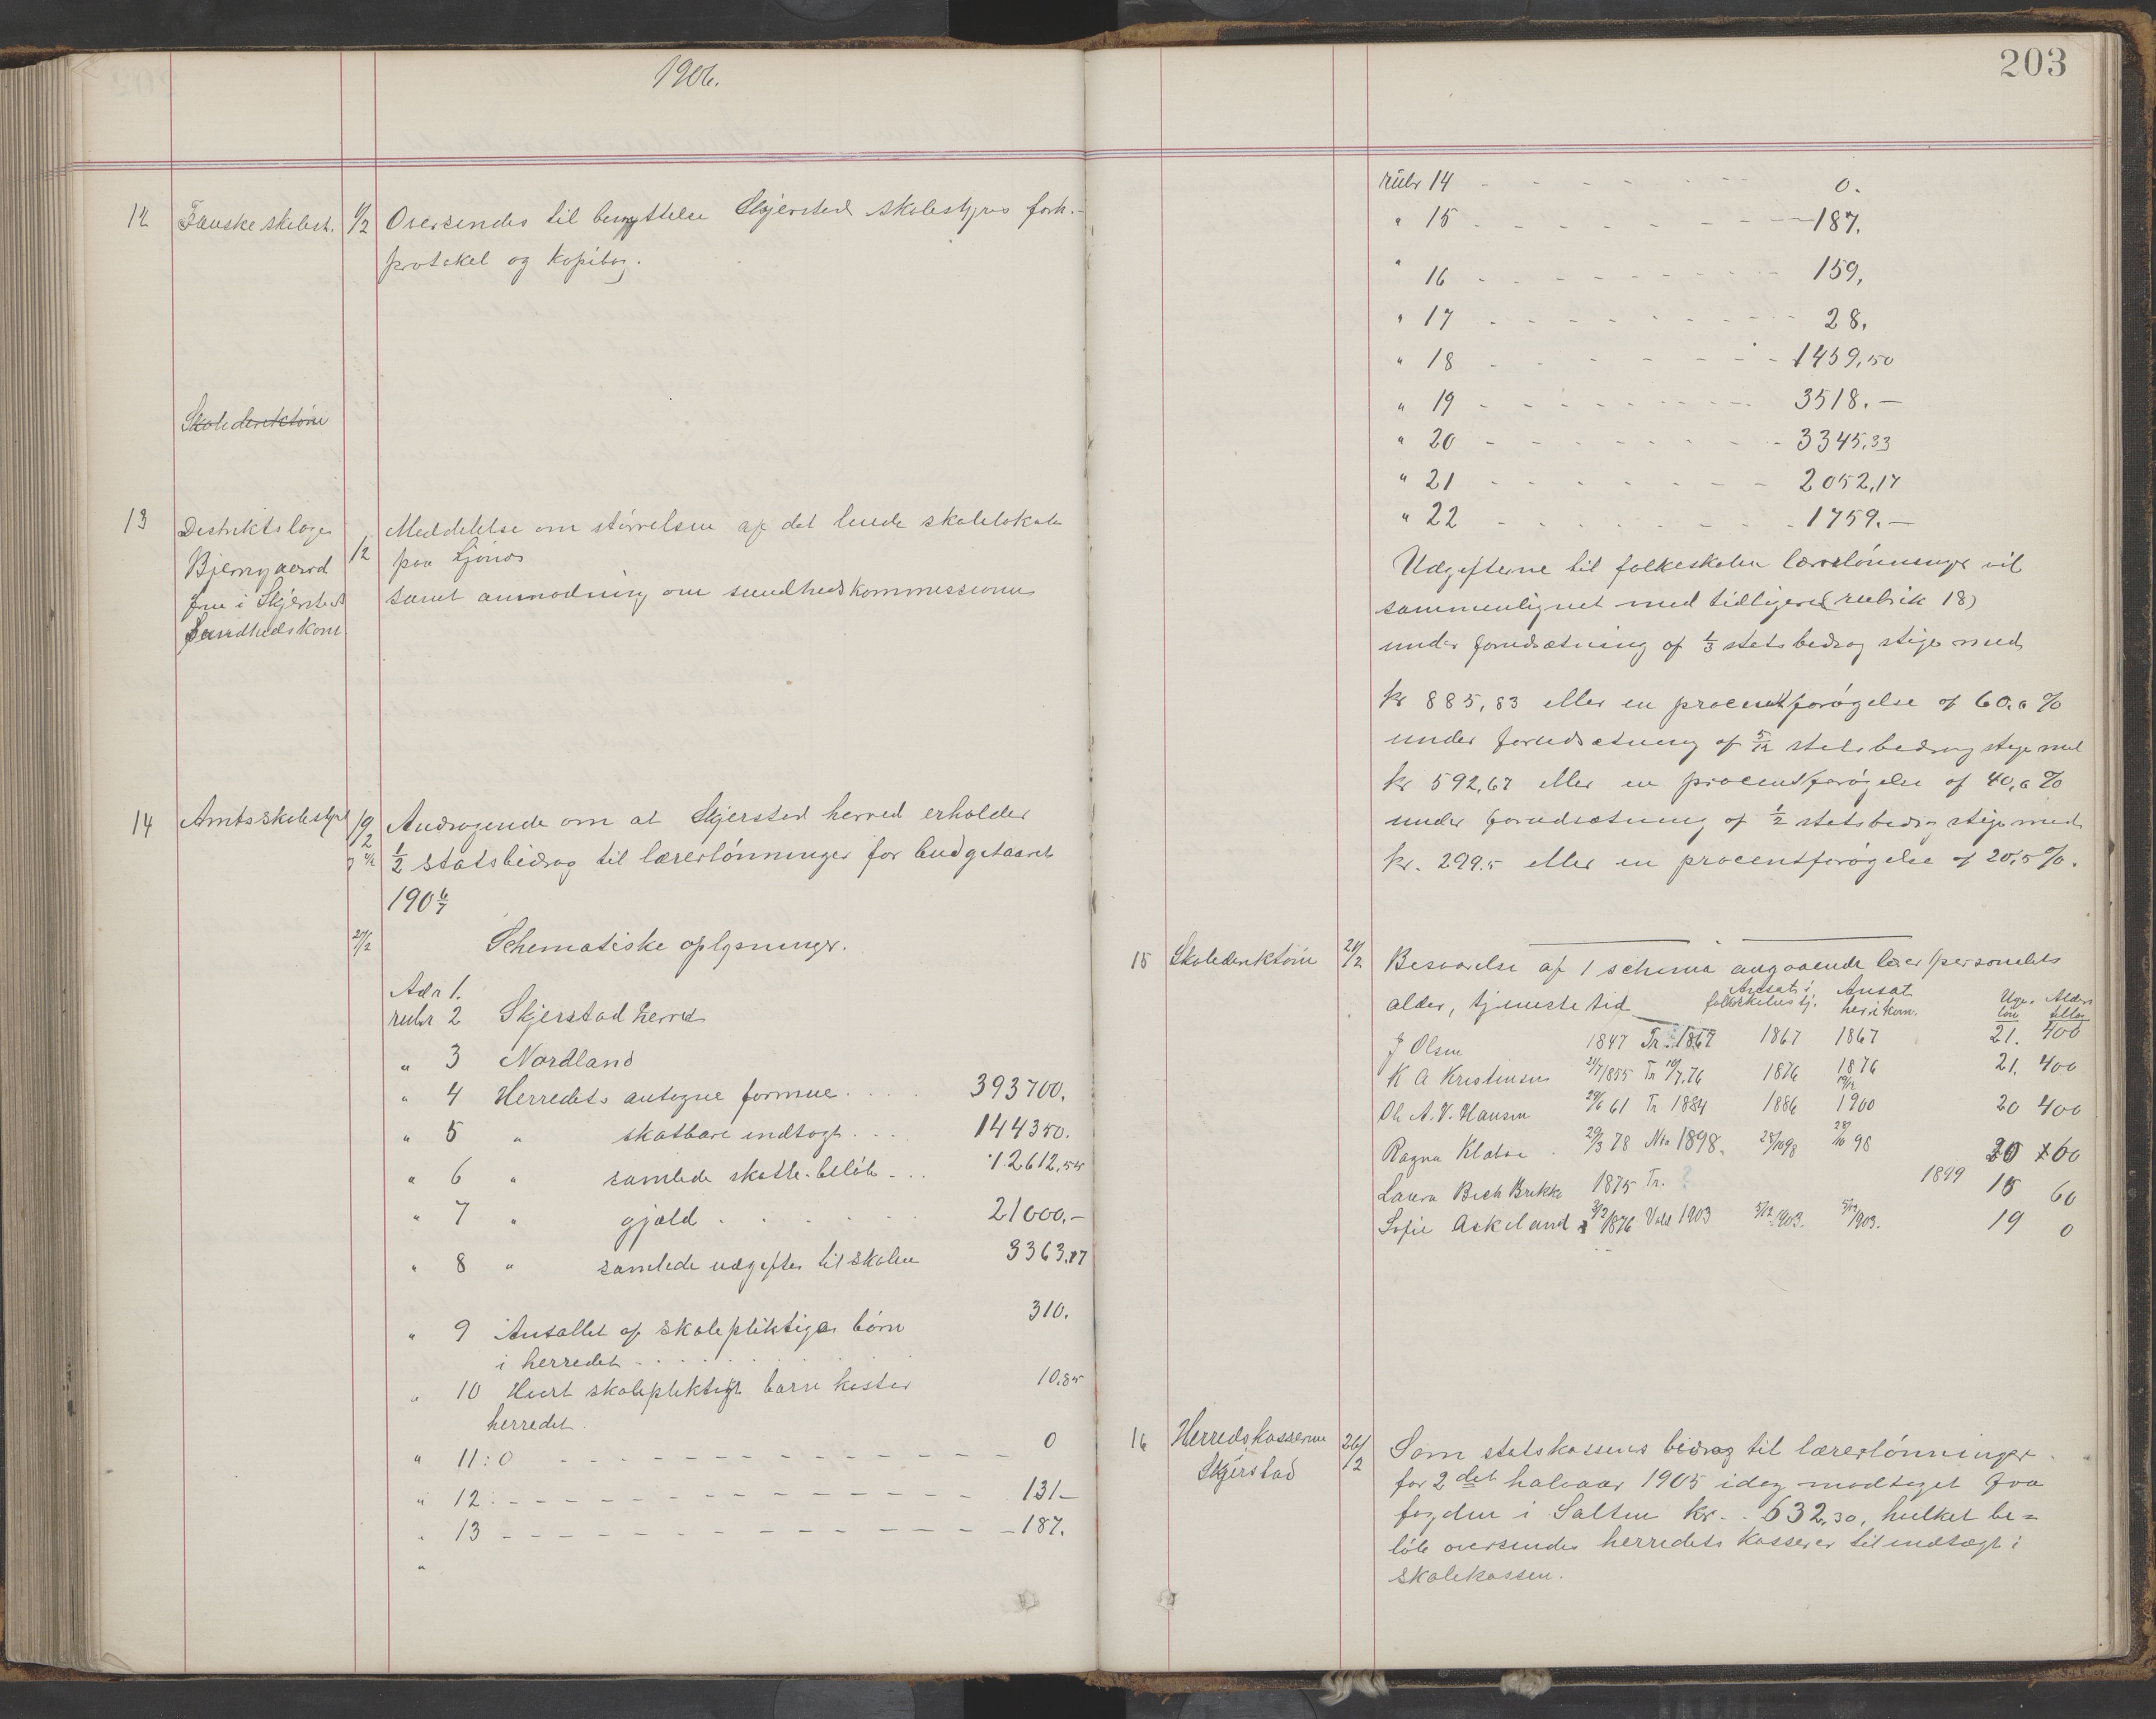 1906.
12 Fauske skolest. 1/2 Oversendes til benyttelse Skjerstad skolestyres forh.-
protokol og kopibog.
Skoledirektøren
13 Distriktslæge 1/2 Meddelelse om størrelsen af det leiede skolelokale
Bjerngaard paa Ljønes
fme i Skjerstad samt anmodning om sundhedskommissionens
Sundhedskom
14 Amtsskolestyret 19/2 Andragende om at Skjerstad herred erholder
1/2 statsbidrag til lærerlønninger for budgetaaret
190 6/7
27/2 Schematiske oplysninger.
Adr 1.
rubr 2 Skjerstad herred
" 3 Nordland
" 4 Herredets antagne formue . . . . 393700.
" 5 " skatbare indtægt . . . . 144350.
" 6 " samlede skatte-beløb . . . 12612,54
" 7 " gjæld . . . . . . 21000.-
" 8 " samlede udgifter til skolen 3363.87
" 9 Antallet af skolepliktige børn 310.
i herredet . . . . . . . .
" 10 Hvert skolepliktigt barn koster 10.85
herredet
" 11: 0 - - - - - - - - - - - - 0
" 12: - - - - - - - - - - - - 131-
" 13 - - - - - - - - - - - - 187.
"
203
rubr 14 - - - - - - - - 0.
" 15 - - - - - - - - 187.
" 16 - - - - - - - - 159,
" 17 - - - - - - - - 28,
" 18 - - - - - - - - 1459,50
" 19 - - - - - - - - 3518.-
" 20 - - - - - - - - 3345.33
" 21 - - - - - - - - 2052,17
" 22 - - - - - - - - 1759.-
Udgifterne til folkeskolen lærerlønninger vil
sammenlignet med tidligere (rubrik 18)
under forudsætning af 1/3 statsbidrag stige med
kr 885,83 eller en procentforøgelse af 60.6 %
under forudsætning af 5/12 statsbidrag stige med
kr 592,67 eller en procentforøgelse af 40,6 %
under forudsætning af 1/2 statsbidrag stige med
kr. 299.5 eller en procentforøgelse af 20,5 %.
15 Skoledirektøren 21/2 Besvarelse af 1 schema angaaende lærerpersonalets
alder, tjenestetid Ansat i folkeskolens tj. Ansat her i kom. Uge- løn Alders tillæg
J Olsen 1847 Tr. 1867 1867 1867 21. 400
K A Kristensen 21/7 1855 Tr 10/7.76 1876 1876 21. 400
Ol. A. V. Hansen 29/6 61 Tr 1884 1886 19/12 1900 20 400
Ragna Klæboe 29/3 78 Non 1898. 28/10 98 28/10 98 20 60
Laura Bech Brekke 1875 Tr. ? 1899 18 60
Sofie Askeland 3/2 1876 Vold 1903 3/12 1903. 3/12 1903. 19 0
16 Herredskasserne 26/2 Som statskassens bidrag til lærerlønninger
Skjerstad for 2det halvaar 1905 idag modtaget fra
fogden i Salten kr. . 632,30, hvilket be=
løb oversendes herredets kasserer til indtægt i
skolekassen.